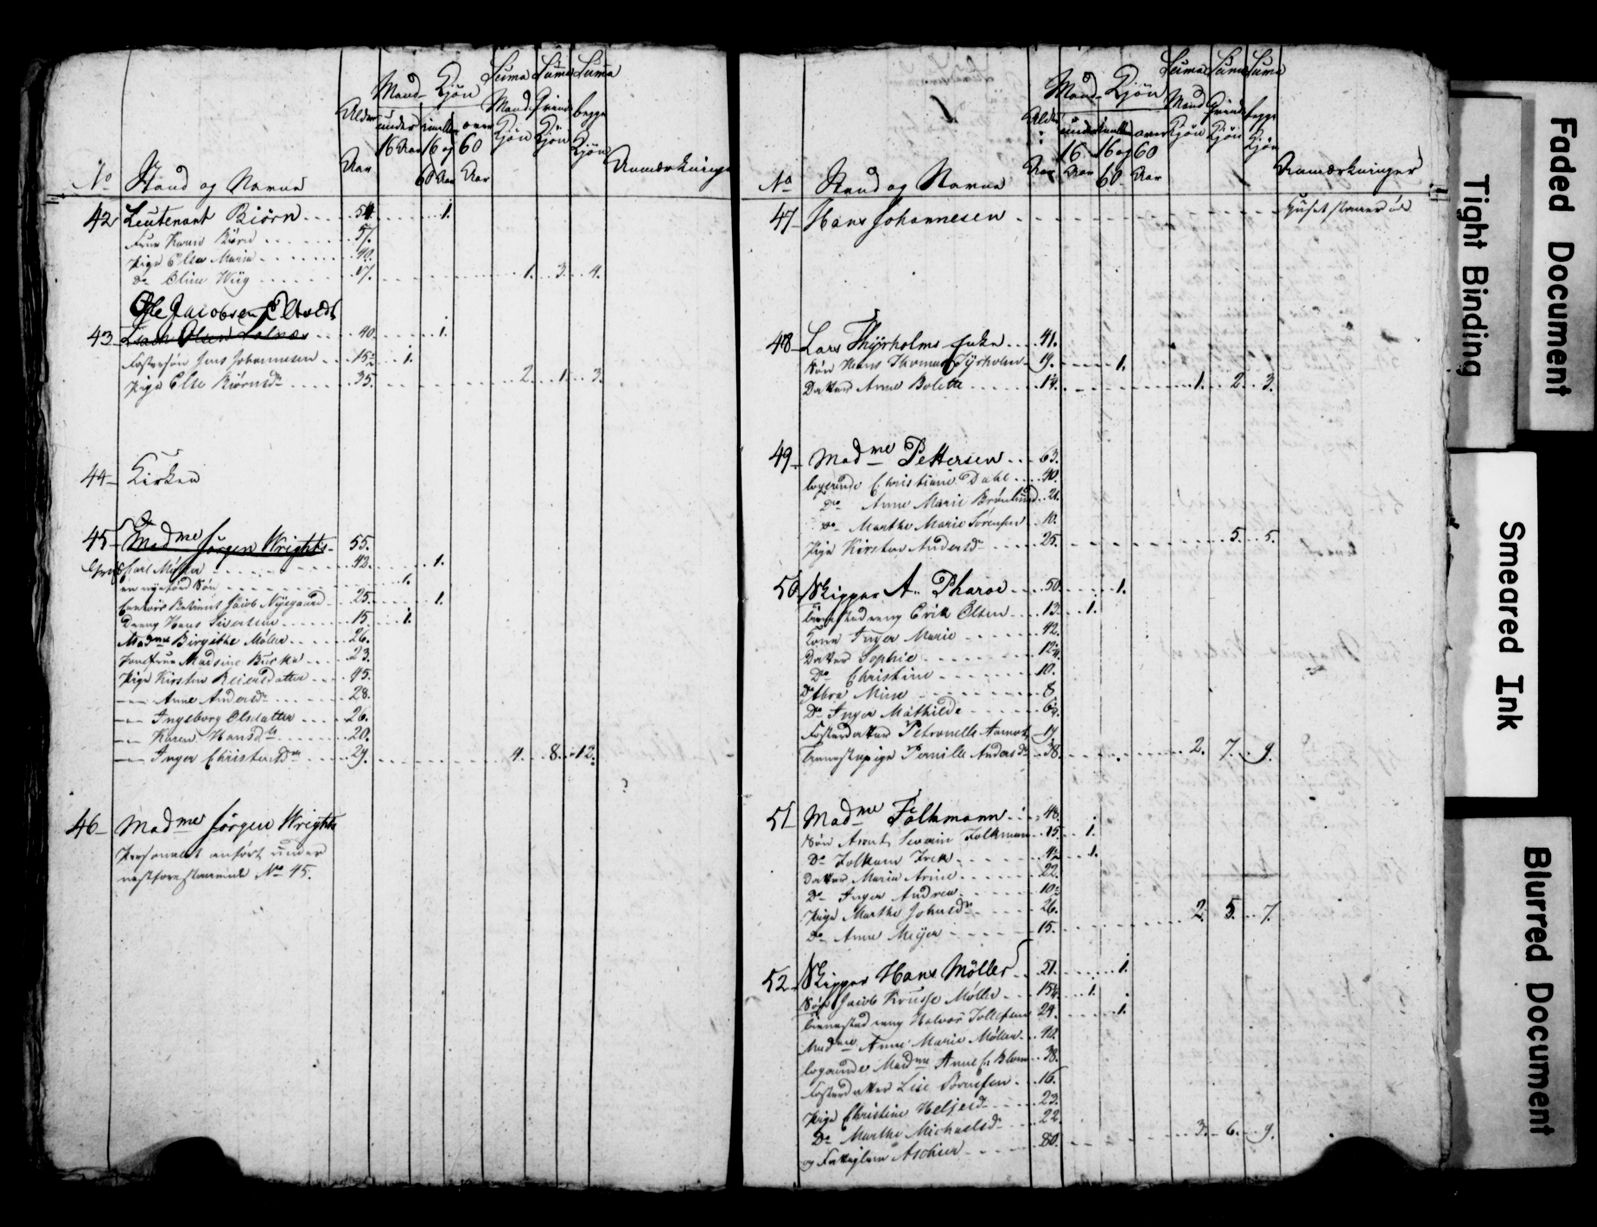 No Stand og Navne Alder Aar Mand-Kjön under 16 Aar imellem 16 og 60 Aar over 60 Aar Suma Mand Kjön Suma Qvinde Kjön Suma begge Kjön Anmærkninger
42 Leutenant Biörn 54. 1.
Frue Karen Biörn 57.
Pige Else Marie 40.
do Oline Wiig 17. 1. 3. 4.
Ole Jacobsen
43 Olsen 40. 1.
Fostersön Jens Johannesen 15 1.
Pige Else Biörnsdr 35. 2. 1. 3.
44 Kirken
45 Madme Jörgen Wrights 55.
Carl Möller 42. 1.
en nyefød Sön 1.
Contoir Betient Jacob Nygaard 25. 1.
Dreng Hans Sivertsen 15 1.
Madme Birgithe Möller 26.
Jomfrue Madsine Burke 23.
Pige Kirsten Reiersdatter 45.
Anne Andersdr 28.
Ingeborg Olsdatter 26.
Karen Hansdr 20.
Inger Christensdr 29. 4. 8. 12.
46 Madme Jörgen Wrights
Personalet anfört under
næstforestaaende No 45.
No Stand og Navne Alder Aar Mand-Kjön under 16 Aar imellem 16 og 60 over 60 Aar Suma Mand Kjön Suma Qvinde Kjön Suma begge Kjön Anmærkninger
47 Hans Johannesen Huset staaer öde
48 Lars Thyrholms Enke 41.
Sön Hans Thomas Tyrholm 19. 1.
Datter Anne Bolette 14. 1. 2. 3.
49 Madme Pettersen 63.
logerende Christiane Dahl 40.
do Anne Marie Brönlund 21.
do Marthe Marie Sörensen 10.
Pige Kirsten Andersdr 25. 5. 5.
50 Skipper A. Pharoe 50. 1.
Tienestedreng Erik Olsen 13. 1.
Kone Inger Marie 42.
Datter Sophie 12
Do Christine 10.
Do Mine 8.
Do Inger Mathilde 6
Fosterdatter Petronelle Aamodt 17
Tienestepige Pernille Andersdr 38 2. 7. 9.
51 Madme Folkmann 43.
Sön Arent Severin Folkman 15. 1.
Do Folkman 1.
Datter Maria Arine 22.
Do Inger Andrea 10
Pige Marthe Johnsdr 26. 2. 5. 7.
Do Anne Meyer 15.
52 Skipper Hans Möller 51. 1.
Sön Jacob Krusse Möller 15 1.
Tienestedreng Halvor Tollefsen 24. 1.
Madme Anne Marie Möller
logerende Madme Anne Blom 38.
Fosterdatter Lise 16.
Pige Christine Heljesdr 23.
Do Marthe Michaelsdr 22. 3. 6. 9.
og 80.
Faded Document
Tight Binding
Smeared Ink
Blurred Document